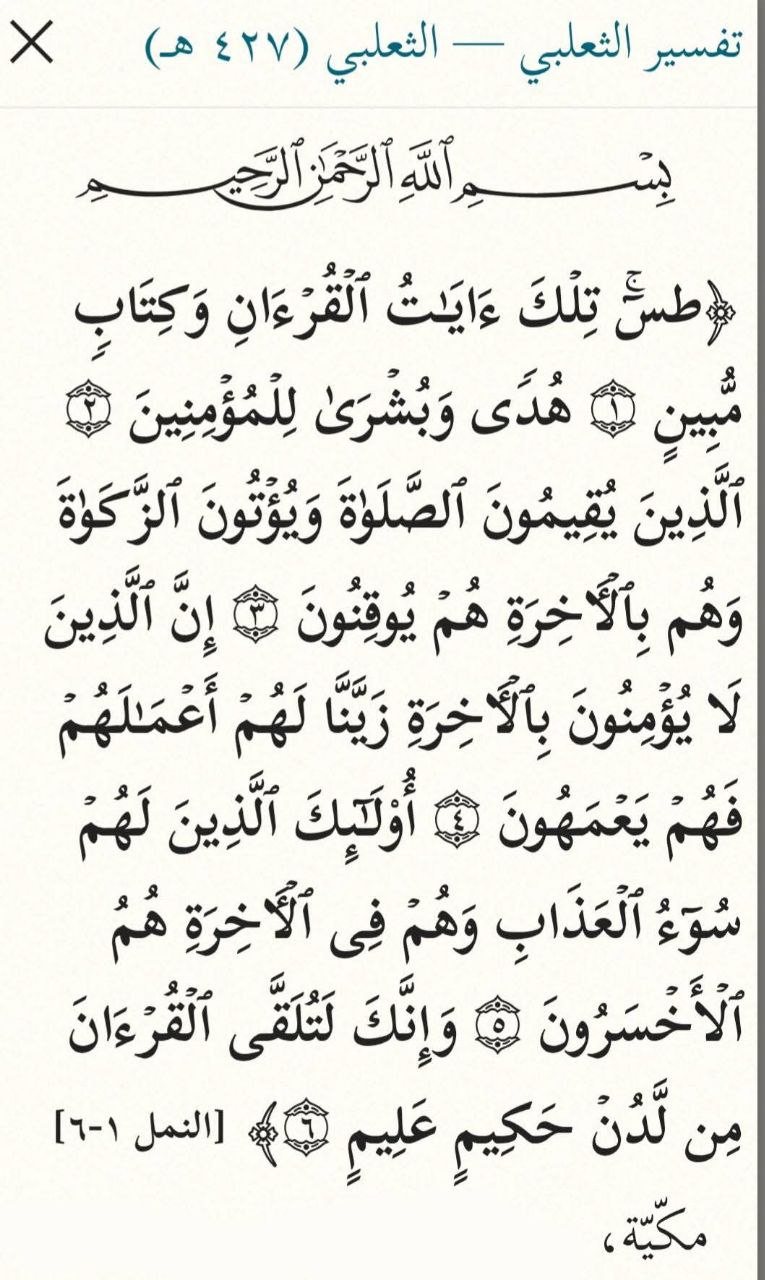 تفسير الثعلبي — الثعلبي (٤٢٧ هـ)
بِسْمِ ٱللَّهِ ٱلرَّحْمَٰنِ ٱلرَّحِيمِ
﴿طسۤۚ تِلْكَ ءَايَـٰتُ ٱلْقُرْءَانِ وَكِتَابࣲ
مُّبِينٍ ١ هُدࣰى وَبُشْرَىٰ لِلْمُؤْمِنِينَ ٢
ٱلَّذِينَ يُقِيمُونَ ٱلصَّلَوٰةَ وَيُؤْتُونَ ٱلزَّكَوٰةَ
وَهُم بِٱلْـَٔاخِرَةِ هُمْ يُوقِنُونَ ٣ إِنَّ ٱلَّذِينَ
لَا يُؤْمِنُونَ بِٱلْـَٔاخِرَةِ زَيَّنَّا لَهُمْ أَعْمَـٰلَهُمْ
فَهُمْ يَعْمَهُونَ ٤ أُو۟لَـٰۤىِٕكَ ٱلَّذِينَ لَهُمْ
سُوۤءُ ٱلْعَذَابِ وَهُمْ فِی ٱلْـَٔاخِرَةِ هُمُ
ٱلْأَخْسَرُونَ ٥ وَإِنَّكَ لَتُلَقَّى ٱلْقُرْءَانَ
مِن لَّدُنْ حَكِيمٍ عَلِيمٍ ٦﴾ [النمل ١-٦]
مكيّة،